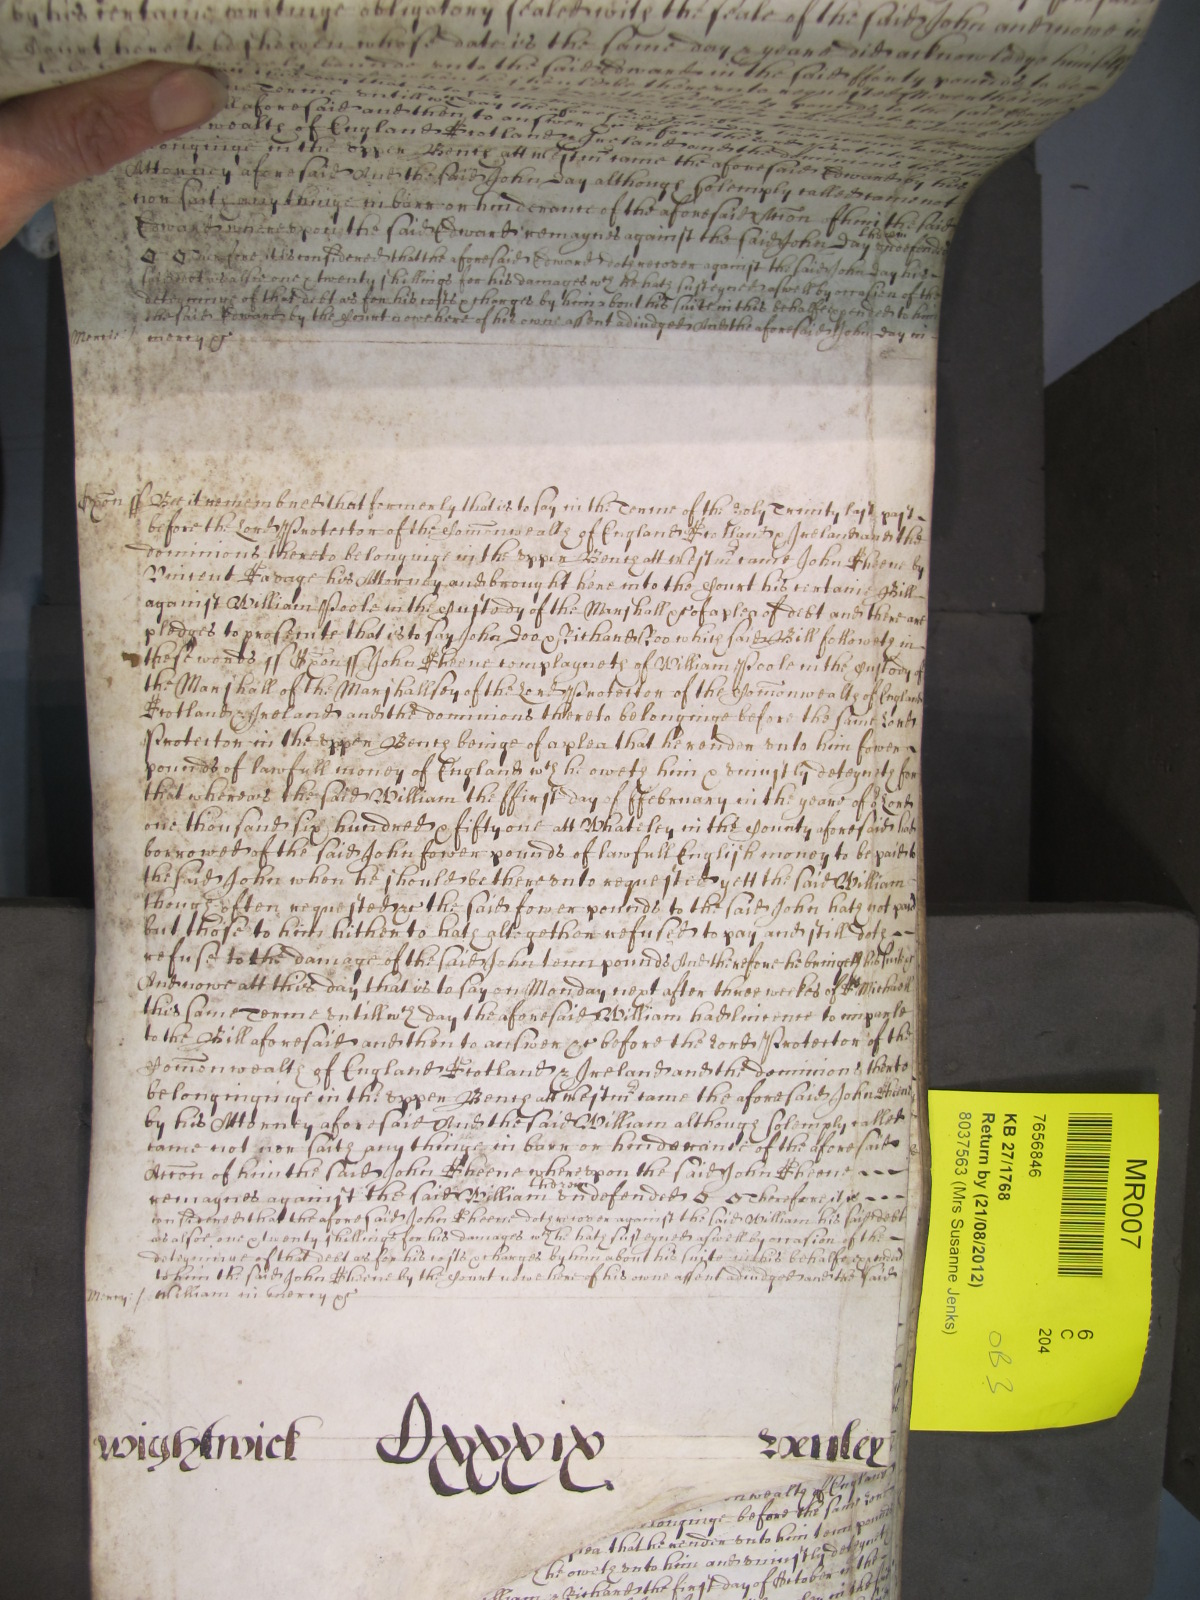 by his certaine writinge obligatory sealed with the seale of the said John and nowe in
Court here to be shewen whose date is the same day & yeare did acknowledge himself
unto the said Edward in the said fforty pounds to be
Terme untill
aforesaid and then to answer
wealth of England Scotland & Ireland and the dominions thereto
longinge in the upper Bench att Westmr came the aforesaid Edward by his
Attorney aforesaid And the said John Day although solemply called came not
nor saith any thinge in barr or hinderance of the aforesaid Accon of him the said
Edward whereupon the said Edward remaynes against the said John Day undefended
Therefore it is considered that the aforesaid Edward doe recover against the said John Day his
said debt as alsoe one & twenty shillings for his damages wch he hath susteyned aswell by occasion of the
deteyninge of that debt as for his costs & charges by him about his suite in this behalfe expended to him
the said Edward by the Court nowe here of his owne assent adiudged And the aforesaid John Day in
Mercie mercy &c
Oxon ss Bee it remembred that formerly that is to say in the Terme of the Holy Trinity last past
before the Lord Protector of the Comonwealth of England Scotland & Ireland and the
dominions thereto belonginge in the upper Bench att Westmr came John Sheene by
Vincent Savage his Attorney and brought here into the Court his certaine Bill
against William Poole in the Custody of the Marshall &c of a plea of debt and there are
pledges to prosecute that is to say John Doo & Richard Roo which said Bill followeth in
these words ss Oxon ss John Sheene complayneth of William Poole in the Custody of
the Marshall of the Marshallsey of the Lord Protector of the Comonwealth of England
Scotland & Ireland and the dominions thereto belonginge before the same Lord
Protector in the upper Bench beinge of a plea that he render unto him fower
pounds of lawfull money of England wch he oweth him & uniustly deteyneth for
that whereas the said William the ffirst day of ffebruary in the yeare of or Lord
one thousand six hundred & fifty one att Whateley in the County aforesaid had
borrowed of the said John fower pounds of lawfull English money to be paid to
the said John when he should be thereunto requested yett the said William
though often requested &c the said fower pounds to the said John hath not paid
but those to him hitherto hath altogether refused to pay and still doth
refuse to the damage of the said John tenn pounds And therefore he bringeth his suite &c
And nowe att this day that is to say on Monday next after three weekes of St Michaell
this same Terme untill wch day the aforesaid William had lincence to imparle
to the Bill aforesaid and then to answer &c before the Lord Protector of the
Comonwealth of England Scotland & Ireland and the dominions thereto
belonginge in the upper Bench att Westmr came the aforesaid John Sheene
by his Attorney aforesaid And the said William although solemply called
came not nor saith any thinge in barr or hinderance of the aforesaid
Accon of him the said John Sheene whereupon the said John Sheene
remaynes against the said William undefended Therefore it is
considered that the aforesaid John Sheene doth recover against the said William his said debt
as alsoe one & twenty shillings for his damages wch he hath susteyned aswell by occasion of the
deteyninge of that debt as for his costs & charges by him about his suite in this behalfe expended
to him the said John Sheene by the Court nowe here of his owne assent adiudged and the said
Mercy / William in mercy &c
Wightwick CXXXIX Henley
nwealth of England
longinge before the same Lord
plea that he render unto him tenn pounds
he oweth unto him and uniustly deteyneth
William & Richard the first day of October in the
MR007
7656846
KB 27/1768
Return by (21/08/2012)
8037563 (Mrs Susanne Jenks)
6
C
204
OB 3